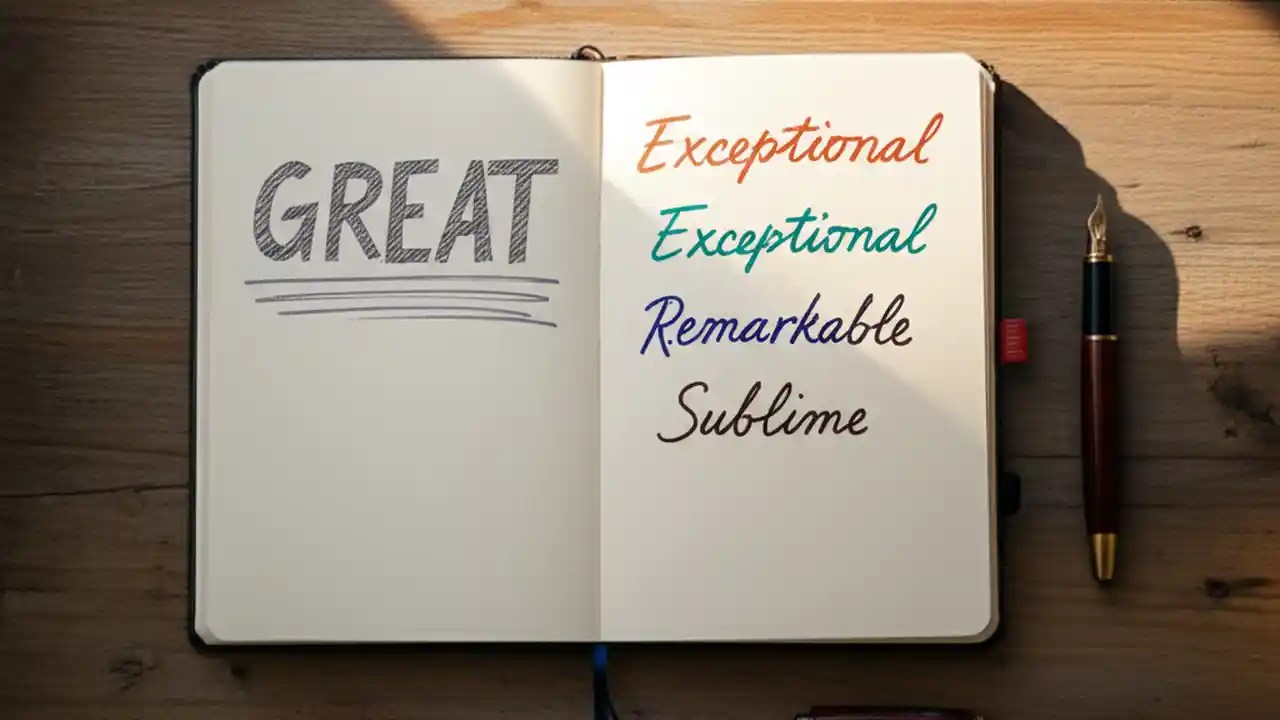 GREAT
Exceptional
Exceptional
Remarkable
Sublime